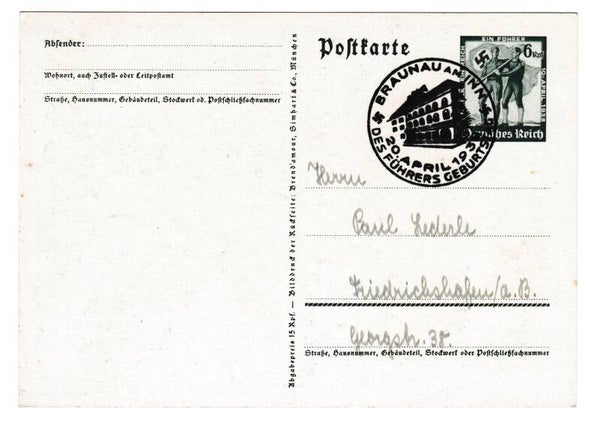 Absender:
Wohnort, auch Zustell- oder Leitpostamt
Straße, Hausnummer, Gebäudeteil, Stockwerk od. Postschließfachnummer
Abgabepreis 15 Rpf. — Bilddruck der Rückseite: Brend'amour, Simhart & Co., München
Postkarte
EIN FÜHRER
10. APRIL 1938
6 Rpf
Deutsches Reich
BRAUNAU AM INN
20. APRIL 193
DES FÜHRERS GEBURTS
Herrn
Paul Lederle
Friedrichshafen/a.B.
Georgstr. 30.
Straße, Hausnummer, Gebäudeteil, Stockwerk oder Postschließfachnummer